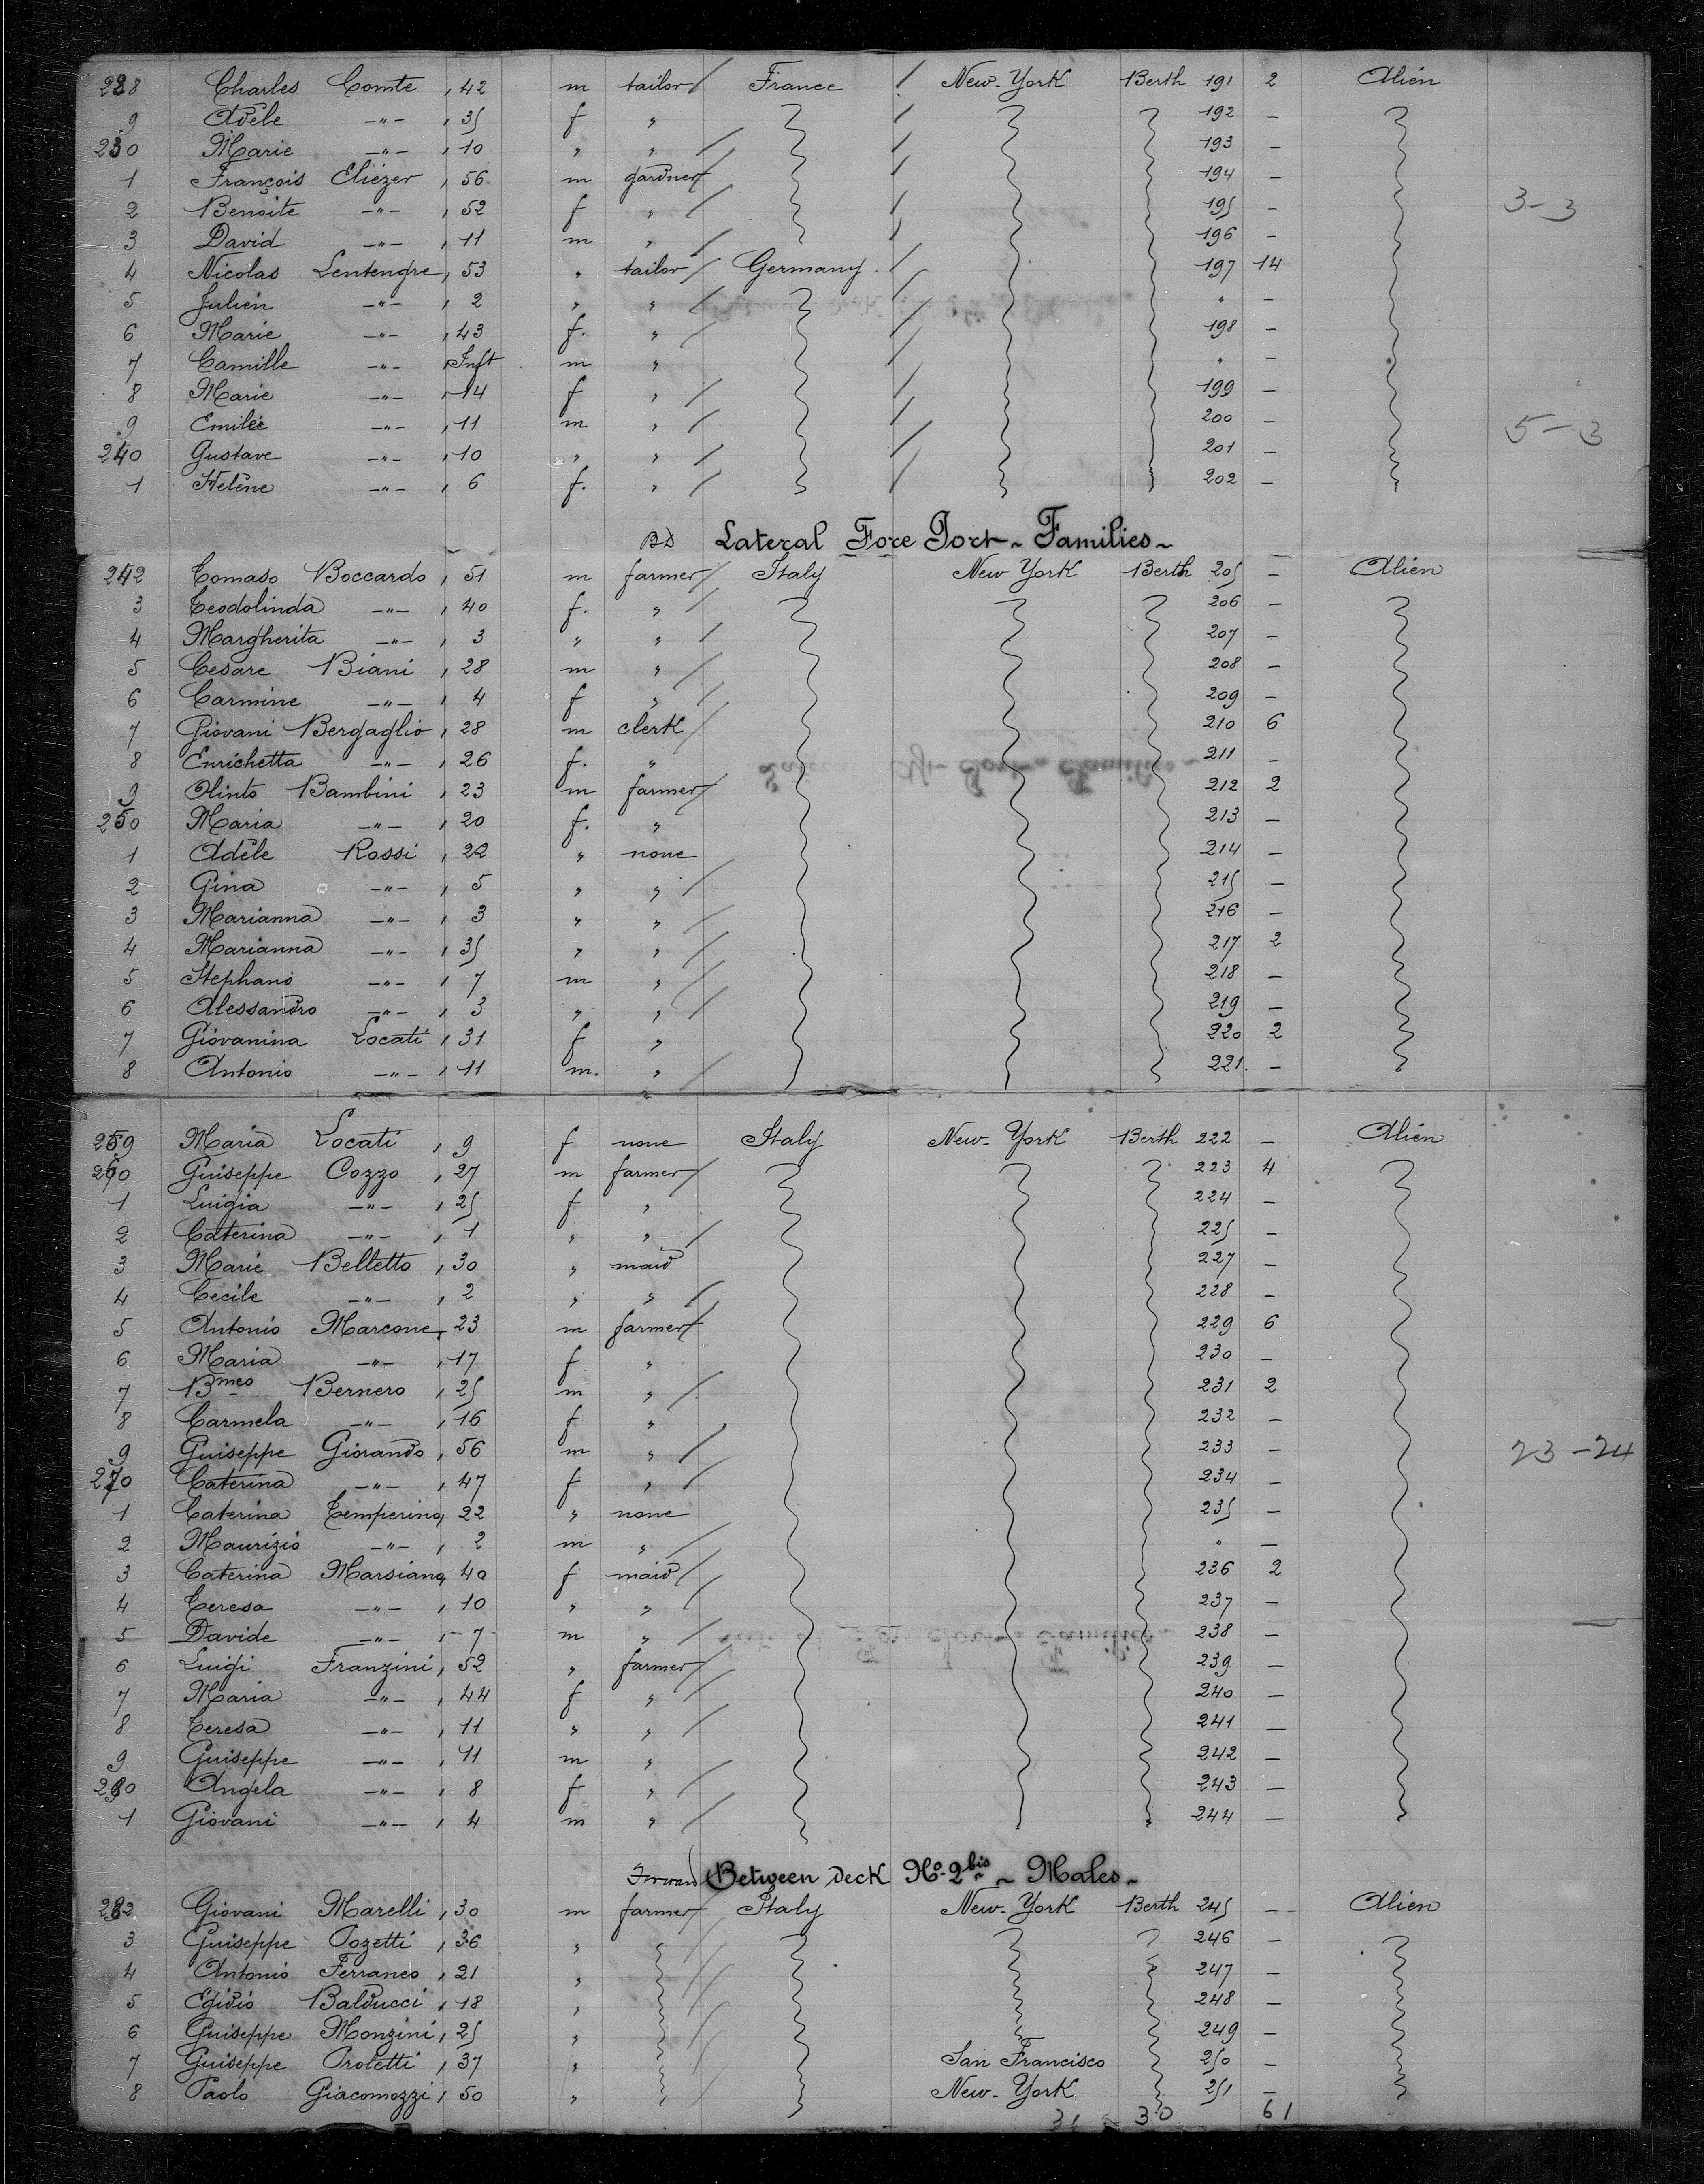 228 Charles Comte , 42 m tailor / France / New-York Berth 191 2 Alien
9 Adèle —"— , 35 f " 192 —
230 Marie —"— , 10 " " / 193 —
1 François Eliézer , 56 m gardner / 194 —
2 Benoite —"— , 52 f " / 195 — 3-3
3 David —"— , 11 m " / 196 —
4 Nicolas Lentengre , 53 " tailor / Germany / 197 14
5 Julien —"— , 2 " " / " —
6 Marie —"— , 43 f. " / 198 —
7 Camille —"— , Inft m " " —
8 Marie —"— , 14 f " / 199 —
9 Emile —"— , 11 m " / 200 — 5-3
240 Gustave —"— , 10 " " / 201 —
1 Helène —"— , 6 f. " / 202 —
BD Lateral Fore Port ~ Families ~
242 Tomaso Boccardo , 51 m farmer / Italy New York Berth 205 — Alien
3 Teodolinda —"— , 40 f. " / 206 —
4 Margherita —"— , 3 " " / 207 —
5 Cesare Biani , 28 m " / 208 —
6 Carmine —"— , 4 f " / 209 —
7 Giovani Bergaglio , 28 m clerk / 210 6
8 Enrichetta —"— , 26 f. " 211 —
9 Olinto Bambini , 23 m farmer / 212 2
250 Maria —"— , 20 f. " 213 —
1 Adèle Rossi , 22 " none 214 —
2 Gina —"— , 5 " " / 215 —
3 Marianna —"— , 3 " " / 216 —
4 Marianna —"— , 35 " " / 217 2
5 Stephano —"— , 7 m " / 218 —
6 Alessandro —"— , 3 " " / 219 —
7 Giovanina Locati , 31 f " 220 2
8 Antonio —"— , 11 m. " / 221. —
259 Maria Locati , 9 f none Italy New-York Berth 222 — Alien
260 Guiseppe Cozzo , 27 m farmer / 223 4
1 Luigia —"— , 25 f " 224 —
2 Caterina —"— , 1 " " / 225 —
3 Marie Belletto , 30 " maid 227 —
4 Cecile —"— , 2 " " / 228 —
5 Antonio Marcone , 23 m farmer / 229 6
6 Maria —"— , 17 f " 230 —
7 Bmeo Bernero , 25 m " / 231 2
8 Carmela —"— , 16 f " 232 —
9 Guiseppe Giorando , 56 m " / 233 — 23-24
270 Caterina —"— , 47 f " / 234 —
1 Caterina Temperino , 22 " none 235 —
2 Maurizio —"— , 2 m " / " —
3 Caterina Marsiano , 40 f maid / 236 2
4 Teresa —"— , 10 " " / 237 —
5 Davide —"— , 7 m " / 238 —
6 Luigi Franzini , 52 " farmer / 239 —
7 Maria —"— , 44 f " / 240 —
8 Teresa —"— , 11 " " / 241 —
9 Guiseppe —"— , 11 m " / 242 —
280 Angela —"— , 8 f " / 243 —
1 Giovani —"— , 4 m " / 244 —
Forward Between deck No. 2bis ~ Males ~
282 Giovani Marelli , 30 m farmer / Italy New-York Berth 245 — Alien
3 Guiseppe Pozetti , 36 " 246 —
4 Antonio Ferraneo , 21 " 247 —
5 Egidio Balducci , 18 " 248 —
6 Guiseppe Monzini , 25 " 249 —
7 Guiseppe Proletti , 37 " San Francisco 250 —
8 Paolo Giacomozzi , 50 " New-York 251 —
31 30 61